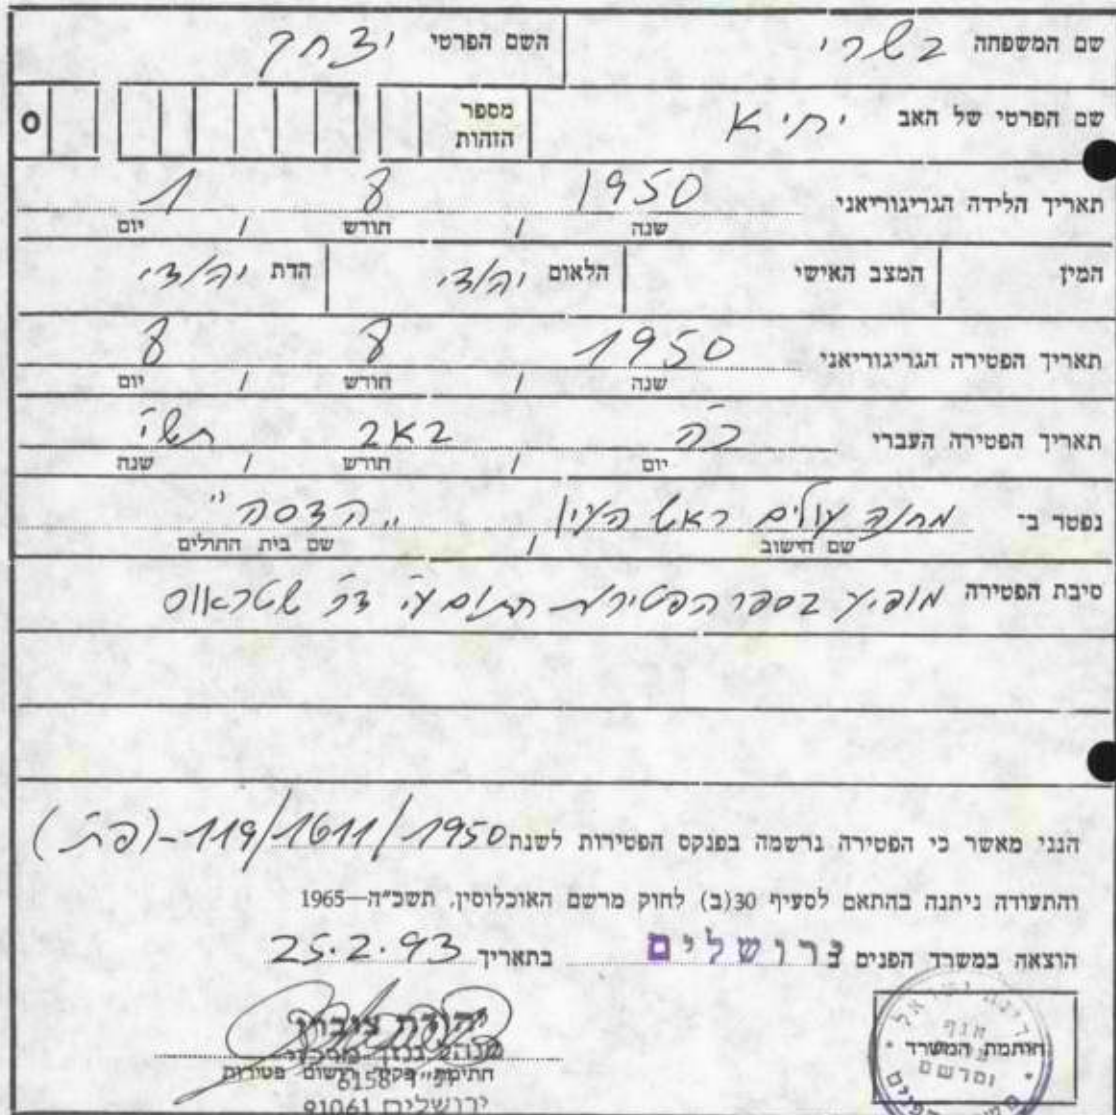 שם המשפחה בשרי השם הפרטי יצחק
שם הפרטי של האב יחיא מספר הזהות 0
תאריך הלידה הגריגוריאני 1950 8 1
שנה / חורש / יום
המין המצב האישי הלאום יהודי הדת יהודי
תאריך הפטירה הגריגוריאני 1950 8 8
שנה / חורש / יום
תאריך הפטירה העברי כ"ה באב תש"י
יום / חורש / שנה
נפטר ב־ מחנה עולים ראש העין "הדסה"
שם הישוב / שם בית החולים
סיבת הפטירה מופיע בספר הפטירות חתום ע"י דר' שטראוס
הנני מאשר כי הפטירה נרשמה בפנקס הפטירות לשנת 1950/1611/119-(פת')
והתעודה ניתנה בהתאם לסעיף 30(ב) לחוק מרשם האוכלוסין, תשכ"ה—1965
הוצאה במשרד הפנים בירושלים בתאריך 25.2.93
יהודית
חותמת המשרד
ומרשם
חתימת פקיד רישום פטירות
6158
ירושלים 91061